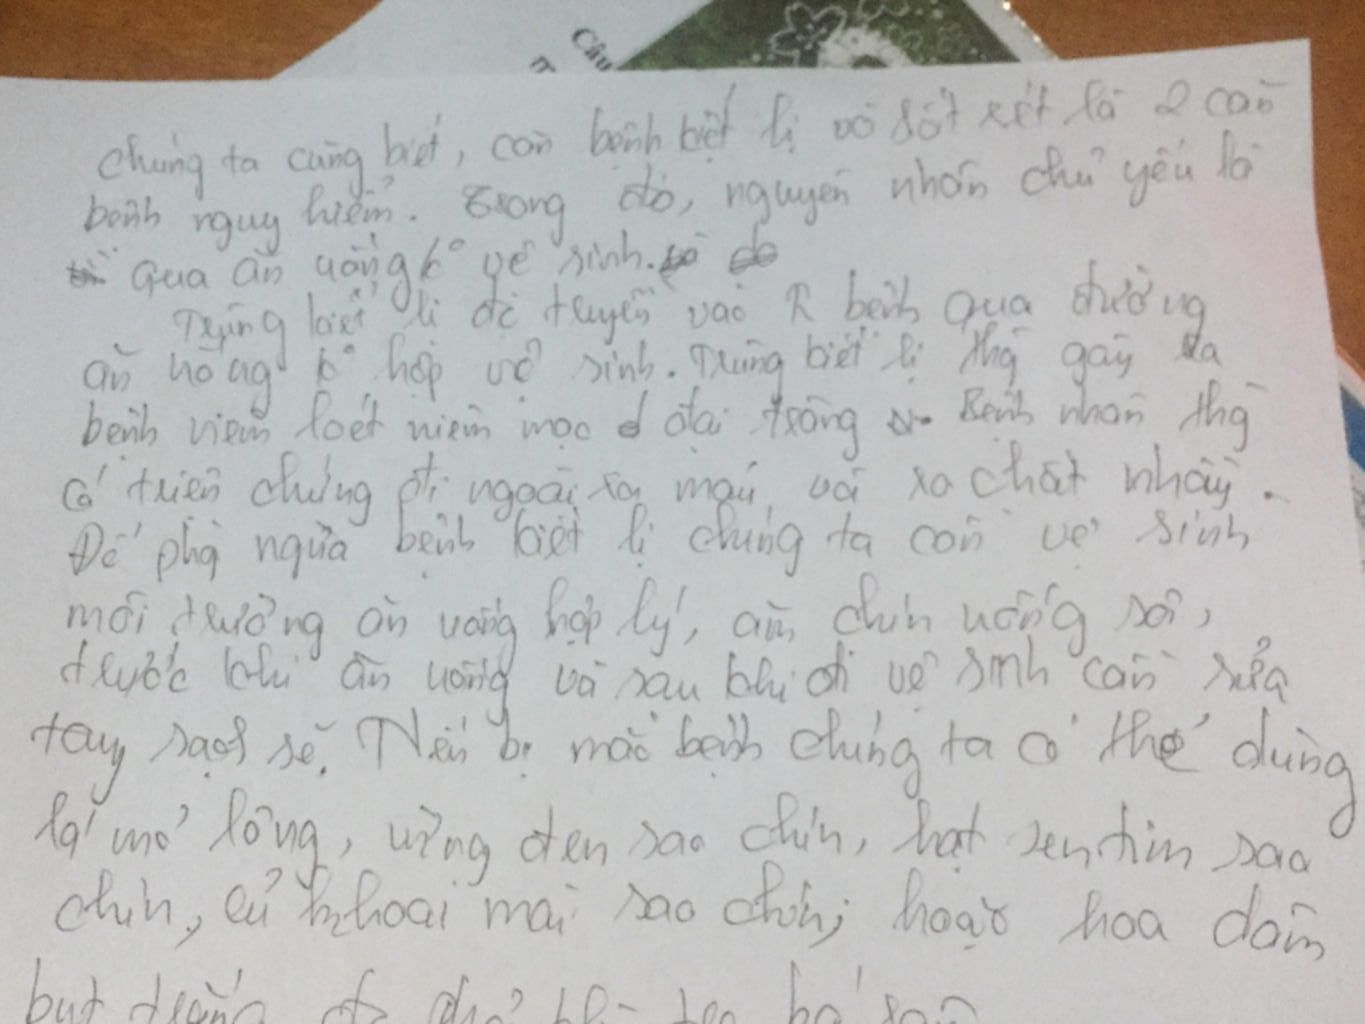 Câu
chúng ta cũng biết, căn bệnh biệt lị và sốt rét là 2 căn
bệnh nguy hiểm. Trong đó, nguyên nhân chủ yếu là
qua ăn uống k° vệ sinh.
Trùng biết lị đc truyền vào bệnh qua đường
ăn uống k° hợp vệ sinh. Trùng biết lị thg gây ra
bệnh viêm loét niêm mạc đại tràng. Bệnh nhân thg
có triện chứng đi ngoài ra máu và ra chất nhầy.
Để phg ngừa bệnh biết lị chúng ta cần vệ sinh
môi trường ăn uống hợp lý, ăn chín uống sôi,
trước khi ăn uống và sau khi đi vệ sinh cần rửa
tay sạch sẽ. Nếu bị mắc bệnh chúng ta có thể dùng
lá mơ lông, vừng đen sao chín, hạt sen tim sao
chín, củ khoai mài sao chín; hoặc hoa dâm
but trắng